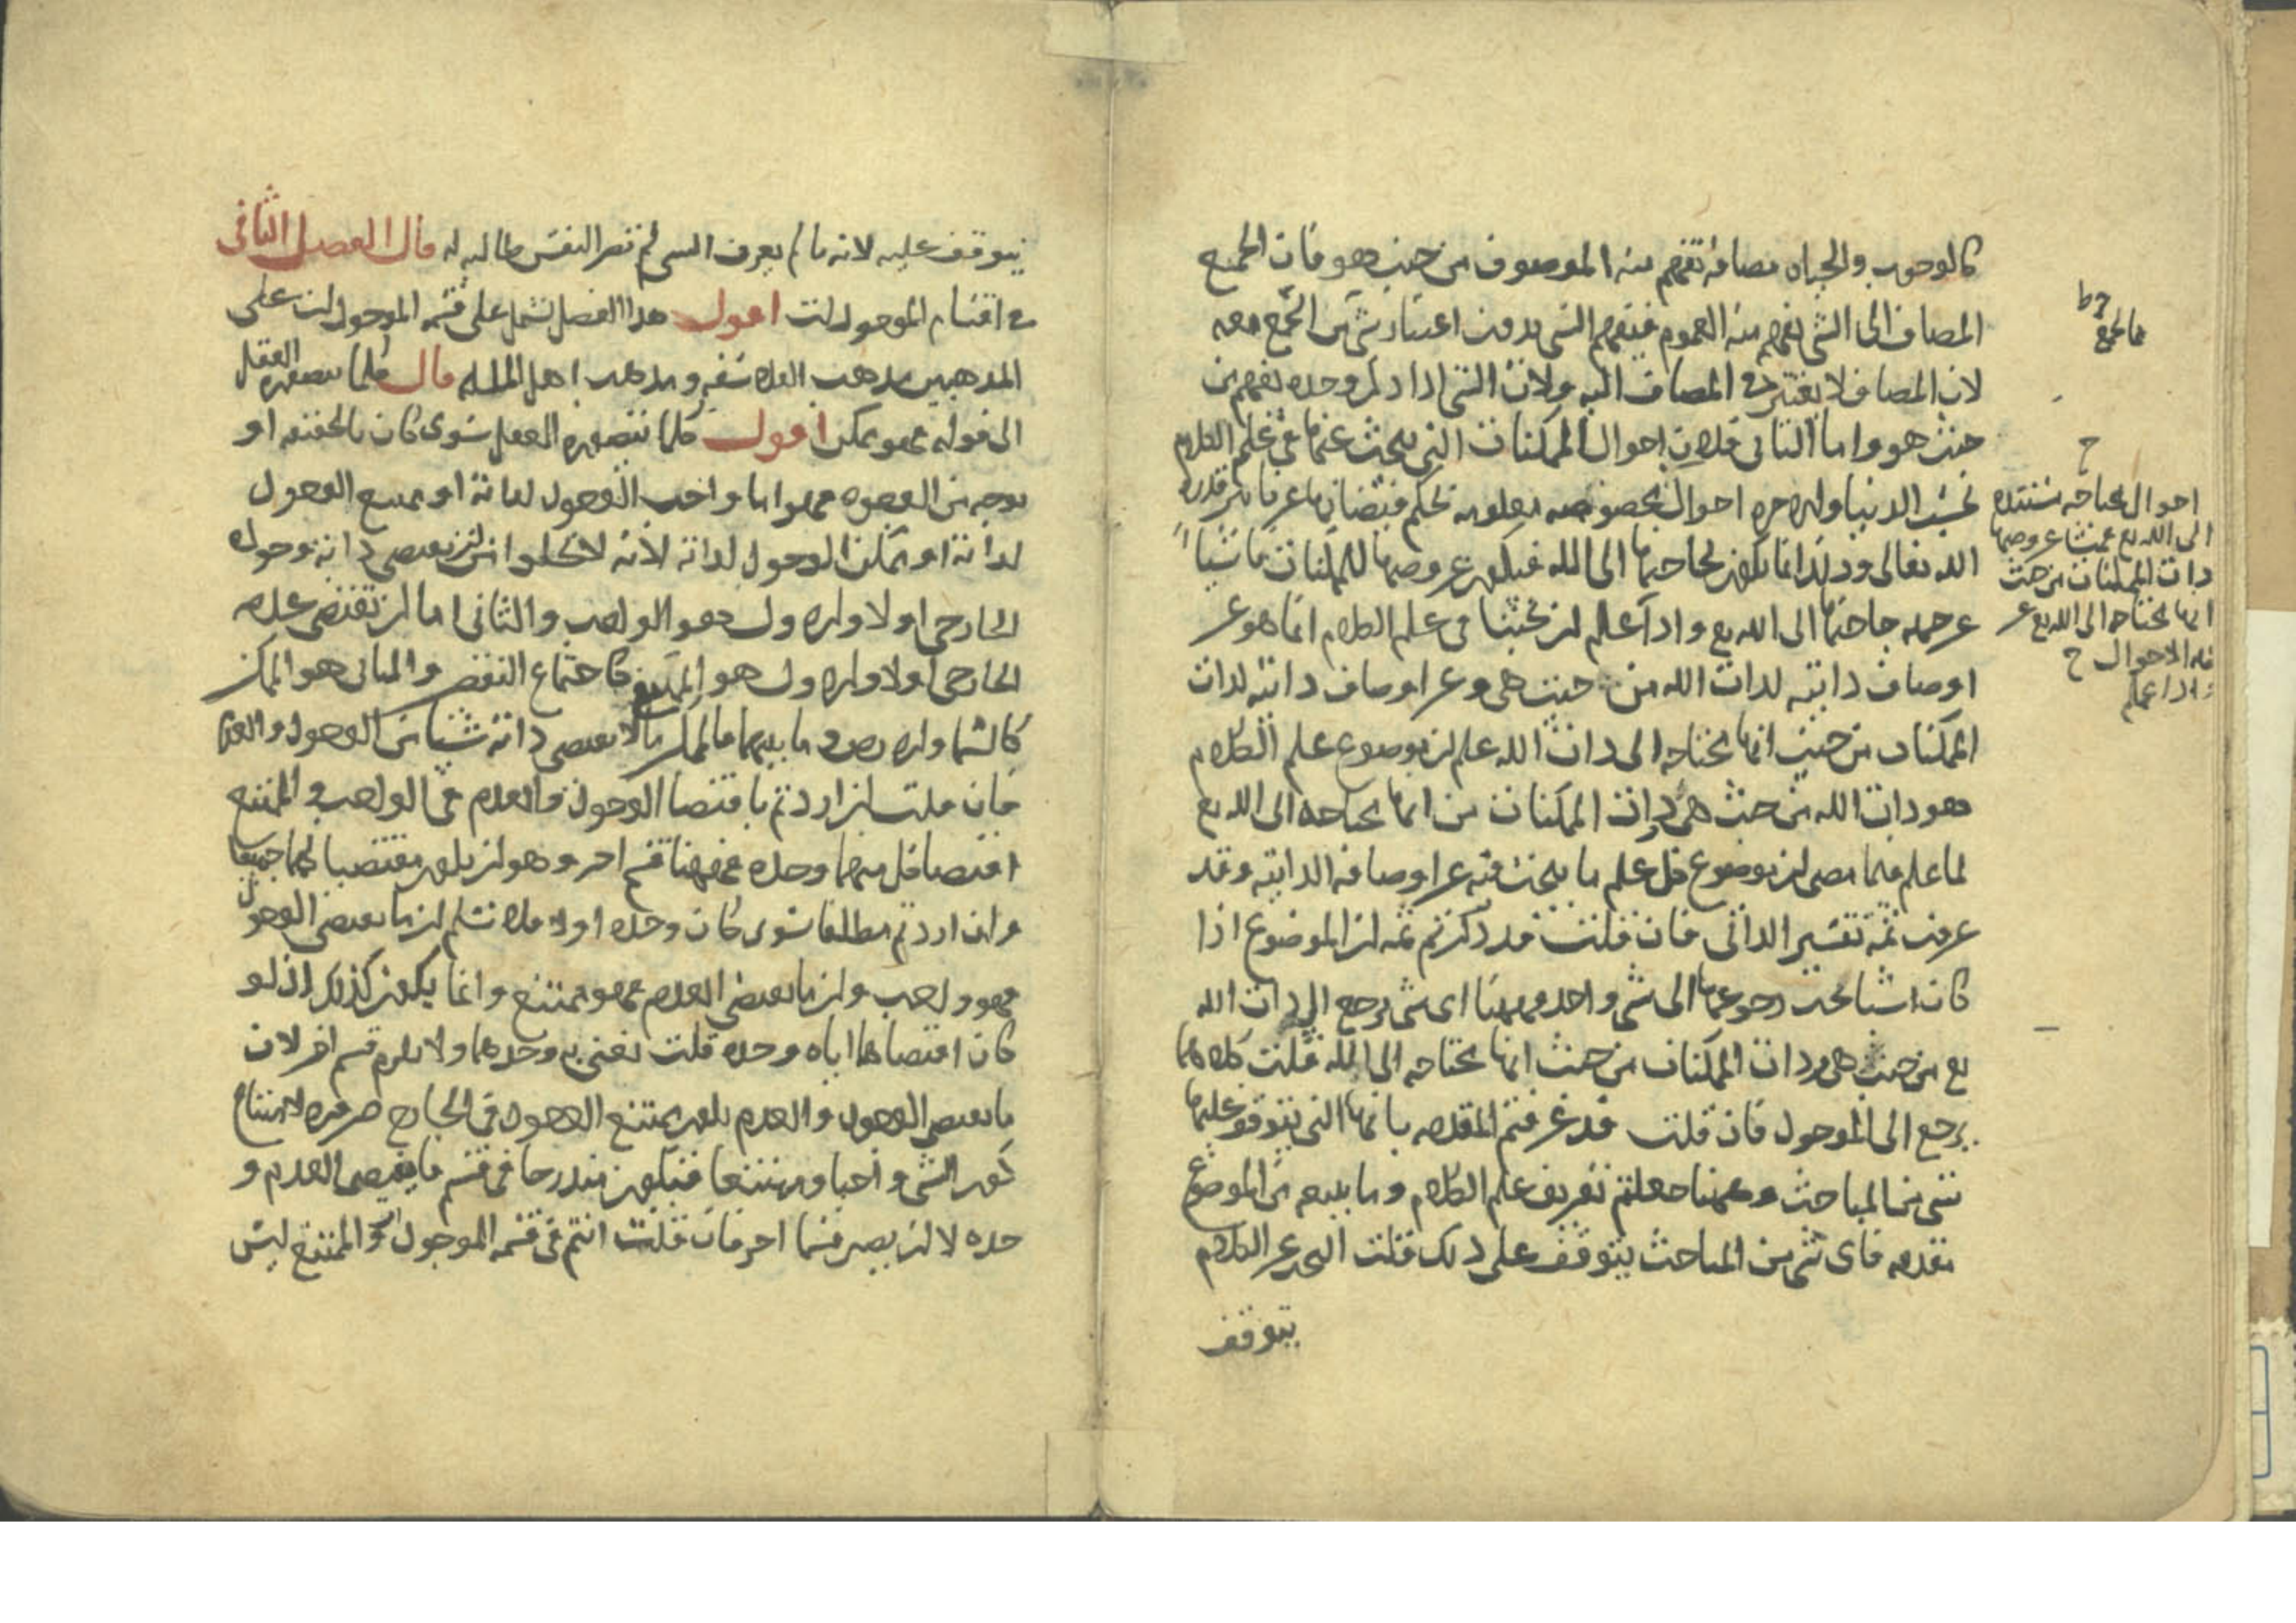 كالوجوب والحياة مضافة تفهم منه الموصوف من حيث هو فان الجميع
المضاف الى الشي يفهم منه العموم فيفهم الشي بدون اعتبار شي من الجميع معه
لان المضاف لا يعتبر في المضاف اليه ولان الشي اذا ذكر وحده يفهم من
حيث هو واما الثاني فلان احوال الممكنات التي يبحث عنها في علم الكلام
احوال مخصوصه معلومه بحكم
الله تعالى وذلك انما يكون لحاجتها الى الله فيكون عروضها للممكنات ناشيا
عن جهة حاجتها الى الله تع واذا علم ان بحثنا في علم الكلام انما هو عن
اوصاف ذاتيه لذات الله من حيث هي وعن اوصاف ذاتيه لذات
الممكنات من حيث انها محتاجه الى ذات الله علم ان موضوع علم الكلام
هو ذات الله من حيث هي وذات الممكنات من انها محتاجه الى الله تع
لما علم فيما مضى ان موضوع كل علم ما يبحث فيه عن اوصافه الذاتيه وقد
عرفت ثمه تفسير الذاتي فان قلت قد ذكرتم ثمه ان الموضوع اذا
كان اشيا يجب رجوعها الى شي واحد وههنا اى شي يرجع اليه ذات الله
تع من حيث هي وذات الممكنات من حيث انها محتاجه الى الله قلت كلاهما
يرجع الى الموجود فان قلت قد عرفتم المقدمه بانها التي يتوقف عليها
شي من المباحث وههنا جعلتم تعريف علم الكلام وما يتبعه من الموضوع
مقدمه فاى شي من المباحث يتوقف على ذلك قلت البحث عن الكلام
يتوقف
احوال محتاجه مستنده
الى الله تع بحيث عروضها
ذات الممكنات من حيث
انها محتاجه الى الله تع عن
هذه الاحوال ح
واذا علم
يتوقف عليه لانه ما لم يعرف الشي لم تصر النفس طالبه له قال الفصل الثانى
في اقسام الموجودات اقول هذا الفصل يشتمل على قسمه الموجودات على
المذهبين مذهب الفلاسفه ومذهب اهل المله قال كلما يتصوره العقل
الى قوله فهو ممكن اقول كلما يتصوره العقل سوى كان بالحقيقه او
بوجه من الوجوه فهو اما واجب الوجود لذاته او ممتنع الوجود
لذاته او ممكن الوجود لذاته لانه لا يخلوا من ان يقتضى ذاته وجوده
الخارجى او لا والاول هو الواجب والثانى اما ان تقتضى عدمه
الخارجى او لا والاول هو الممتنع كاجتماع النقيضين والثانى هو الممكن
كالسما والارض وما بينهما فالممكن ما لا يقتضى ذاته شيا من الوجود والعدم
فان قلت ان اردتم باقتضا الوجود والعدم في الواجب والممتنع
اقتضا كل منهما وحده فههنا قسم اخر وهو ان يكون مقتضيا لهما جميعا
وان اردتم مطلقا سوى كان وحده او لا فلا نسلم ان ما يقتضى الوجود
فهو واجب وان ما يقتضى العدم فهو ممتنع وانما يكون كذلك اذ لو
كان اقتضاها اياه وحده قلت نعنى به وحدهما ولا يلزم قسم اخر لان
ما يقتضى الوجود والعدم يكون ممتنع الوجود في الخارج ضروره لامتناع
كون الشي واجبا وممتنعا فيكون مندرجا في قسم ما يقتضى العدم و
حده لا ان يصير قسما اخر فان قلت انتم في قسمه الموجود والممتنع ليس